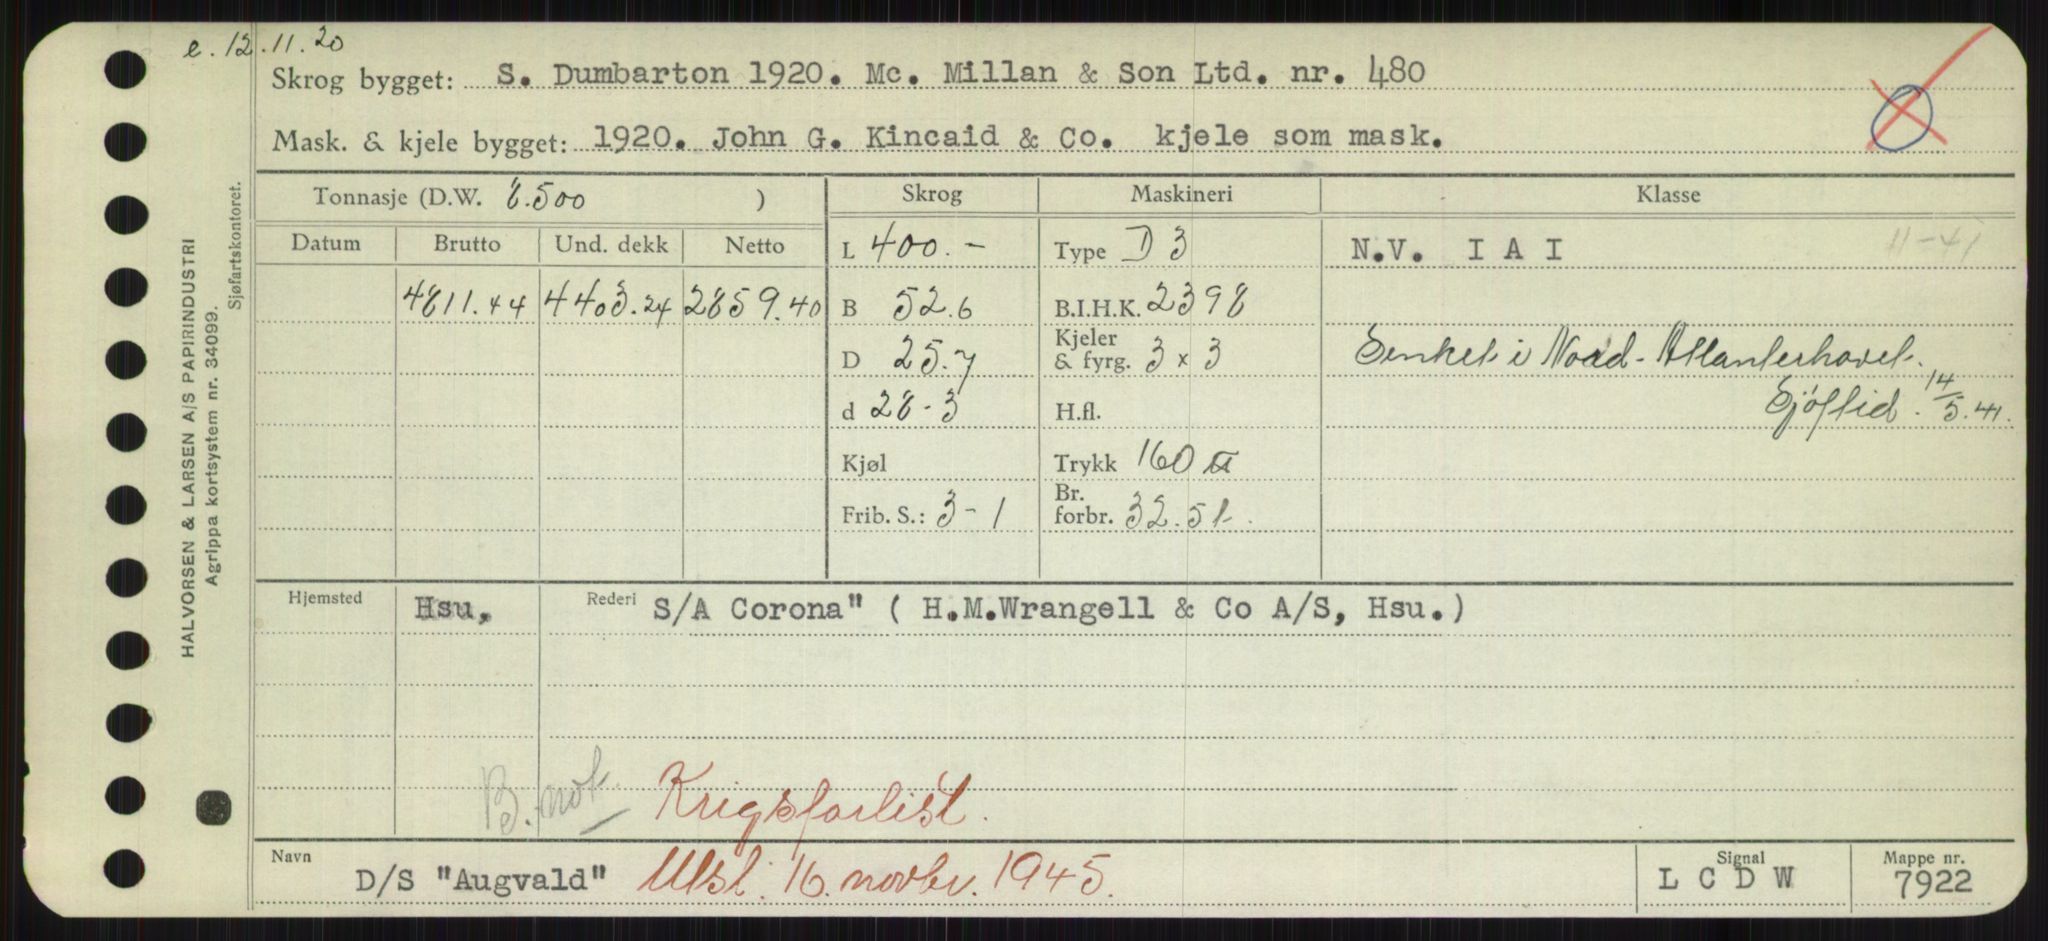 e. 12.11.20
Skrog bygget: S. Dumbarton 1920. Mc. Millan & Son Ltd. nr. 480
Mask. & kjele bygget: 1920. John G. Kincaid & Co. kjele som mask.
Tonnasje (D.W. 8.500 ) Skrog Maskineri Klasse
Datum Brutto Und. dekk Netto L 400.- Type D 3 N.V. I A I 11-41
4811.44 4403.24 2859.40 B 52.6 B.I.H.K. 2398
D 25.7 Kjeler & fyrg. 3 x 3 Senket i Nord-Atlanterhavet.
d 28-3 H.fl. Sjöftid. 14/5.41.
Kjøl Trykk 160 ℔
Frib. S.: 3-1 Br. forbr. 32.5 t.
Hjemsted Hsu, Rederi S/A Corona" ( H.M.Wrangell & Co A/S, Hsu.)
B. not. Krigsforlist.
Navn D/S "Augvald" Utsl. 16. novbr. 1945. Signal L C D W Mappe nr. 7922
HALVORSEN & LARSEN A/S PAPIRINDUSTRI
Agrippa kortsystem nr. 34099.
Sjøfartskontoret.